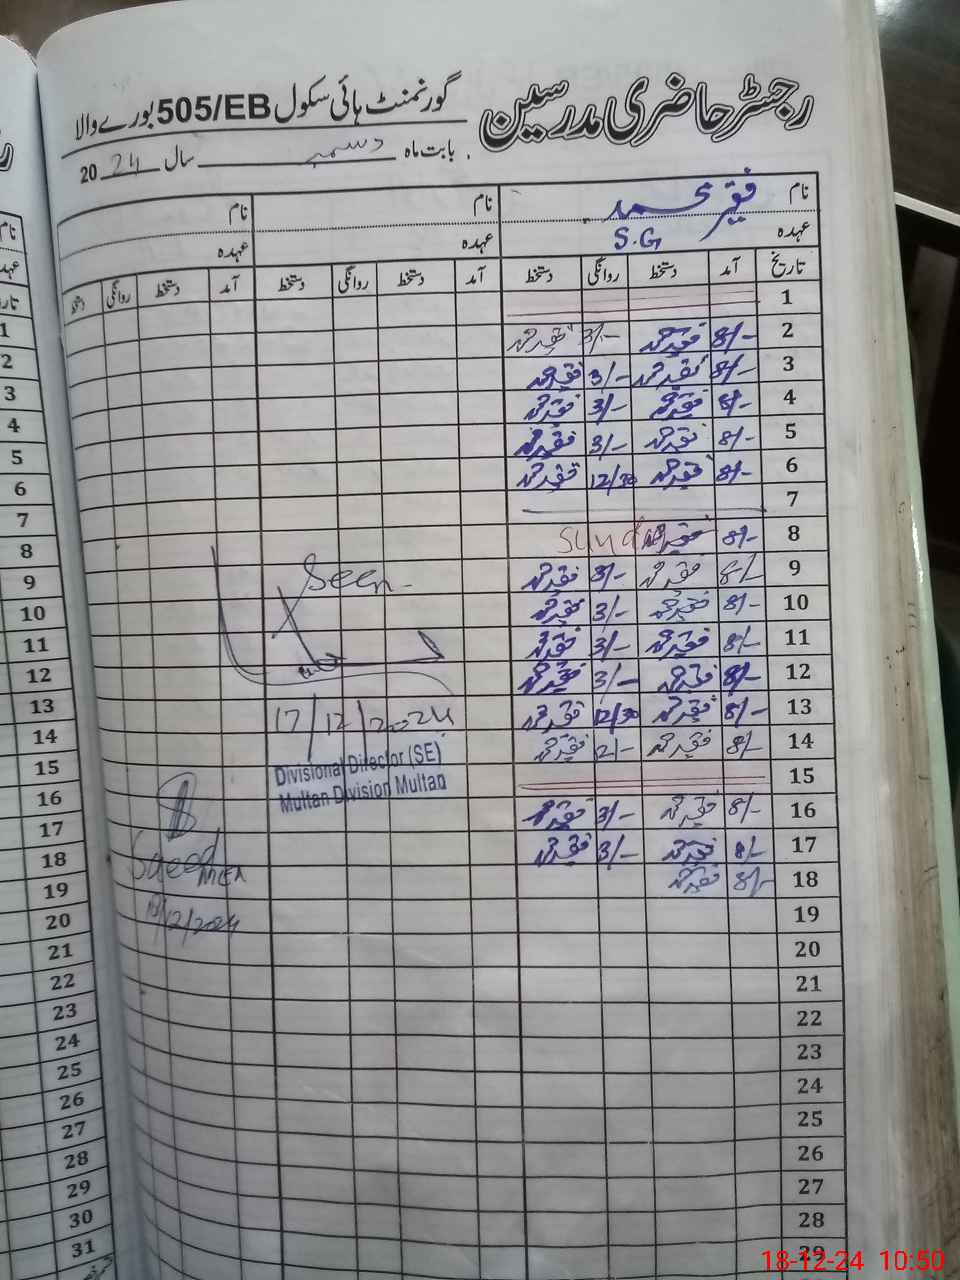 رجسٹر حاضری مدرسین
گورنمنٹ ہائی سکول 505/EB بورے والا
بابت ماہ دسمبر سال 2024
نام فقیر محمد نام نام
عہدہ S.G عہدہ عہدہ
تاریخ آمد دستخط روانگی دستخط آمد دستخط روانگی دستخط آمد دستخط روانگی دستخط
1
2 8/- فقیر محمد 3/- فقیر محمد
3 8/- فقیر محمد 3/- فقیر محمد
4 8/- فقیر محمد 3/- فقیر محمد
5 8/- فقیر محمد 3/- فقیر محمد
6 8/- فقیر محمد 12/30 فقیر محمد
7
8 8/- فقیر محمد Sunday
9 8/- فقیر محمد 3/- فقیر محمد
10 8/- فقیر محمد 3/- فقیر محمد
11 8/- فقیر محمد 3/- فقیر محمد
12 8/- فقیر محمد 3/- فقیر محمد
13 8/- فقیر محمد 12/30 فقیر محمد
14 8/- فقیر محمد 2/- فقیر محمد
15
16 8/- فقیر محمد 3/- فقیر محمد
17 8/- فقیر محمد 3/- فقیر محمد
18 8/- فقیر محمد
19
20
21
22
23
24
25
26
27
28
29
Seen
17/12/2024
Divisional Director (SE)
Multan Division Multan
Saeed
12/2024
نام
عہدہ
1
2
3
4
5
6
7
8
9
10
11
12
13
14
15
16
17
18
19
20
21
22
23
24
25
26
27
28
29
30
31
18-12-24 10:50